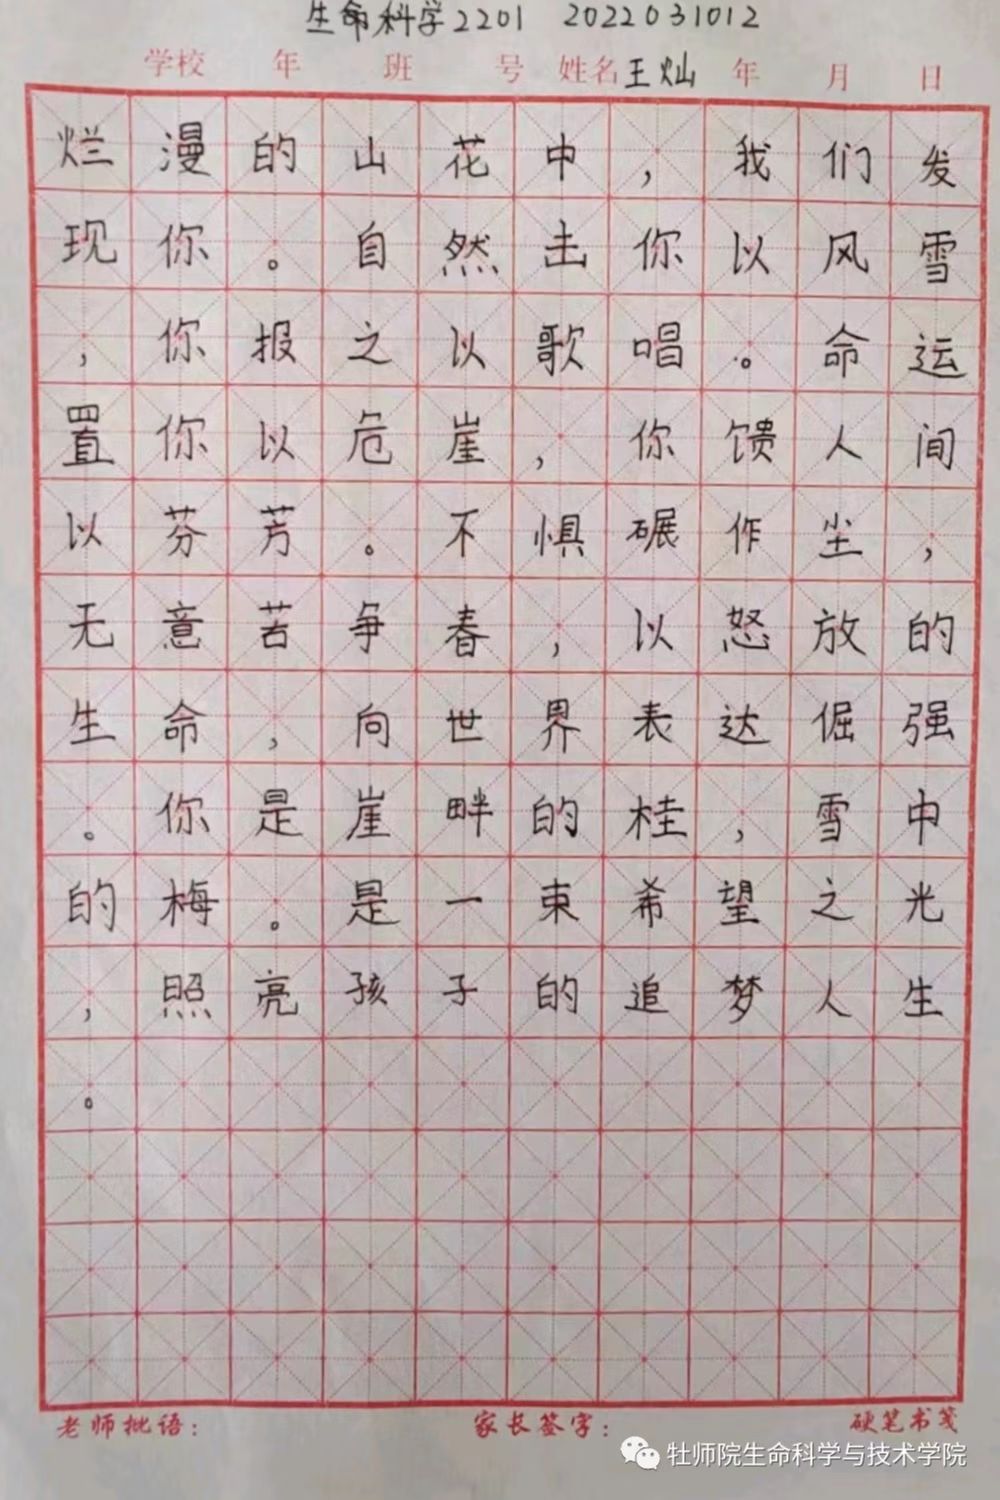 生命科学2201 2022031012
学校 年 班 号 姓名王灿 年 月 日
烂漫的山花中，我们发
现你。自然击你以风雪
，你报之以歌唱。命运
置你以危崖，你馈人间
以芬芳。不惧碾作尘，
无意苦争春，以怒放的
生命，向世界表达倔强
。你是崖畔的桂，雪中
的梅。是一束希望之光
，照亮孩子的追梦人生
。
老师批语： 家长签字： 硬笔书笺
牡师院生命科学与技术学院